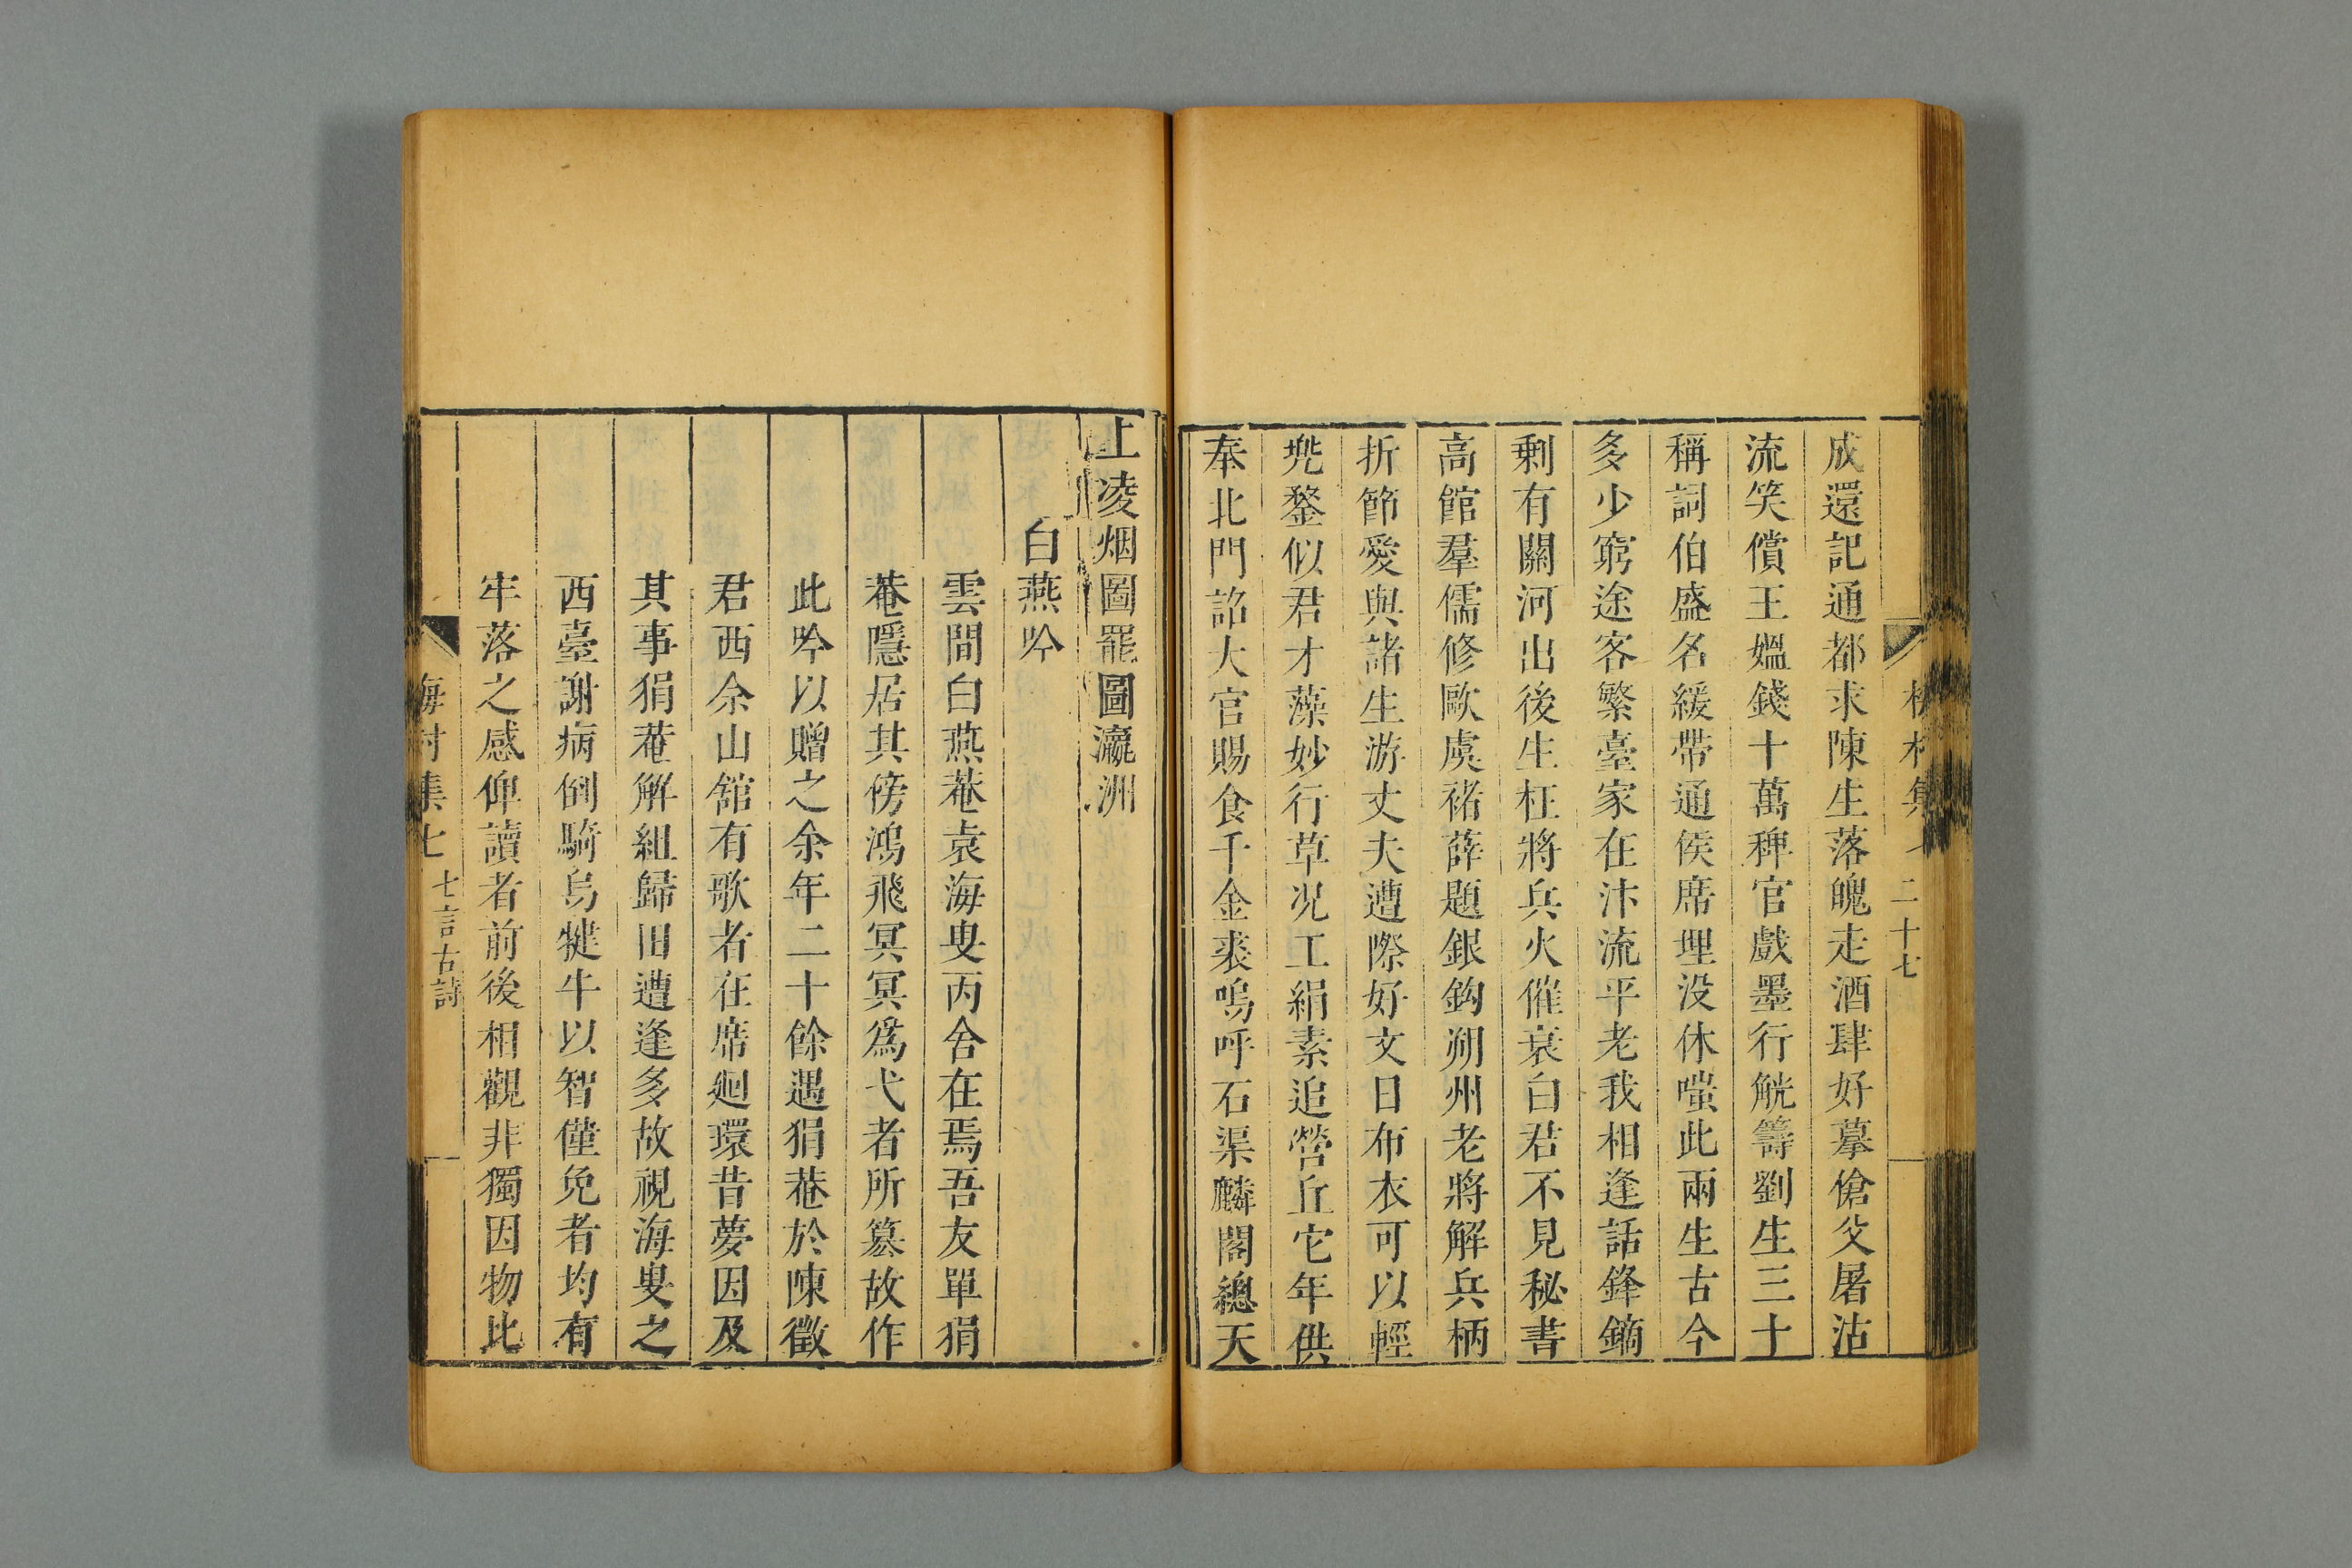 二十七
成還記通都求陳生落魄走酒肆好摹傖父屠沽
流笑償王媼錢十萬稗官戲墨行觥籌劉生三十
稱詞伯盛名緩帶通侯席埋没休嗤此兩生古今
多少窮途客繁臺家在汴流平老我相逢話鋒鏑
剩有關河出後生枉將兵火催衰白君不見秘書
高館羣儒修歐虞褚薛題銀鈎朔州老將解兵柄
折節愛與諸生游丈夫遭際好文日布衣可以輕
兠鍪似君才藻妙行草况工絹素追營丘它年供
奉北門詔大官賜食千金裘嗚呼石渠麟閣總天
上凌烟圖罷圖瀛洲
白燕吟
雲間白燕菴袁海叟丙舍在焉吾友單狷
菴隱居其傍鴻飛冥冥爲弋者所篡故作
此吟以贈之余年二十餘遇狷菴於陳徵
君西佘山館有歌者在席廻環昔夢因及
其事狷菴解組歸田遭逢多故視海叟之
西臺謝病倒騎烏犍牛以智僅免者均有
牢落之感俾讀者前後相觀非獨因物比
梅村集七 七言古詩